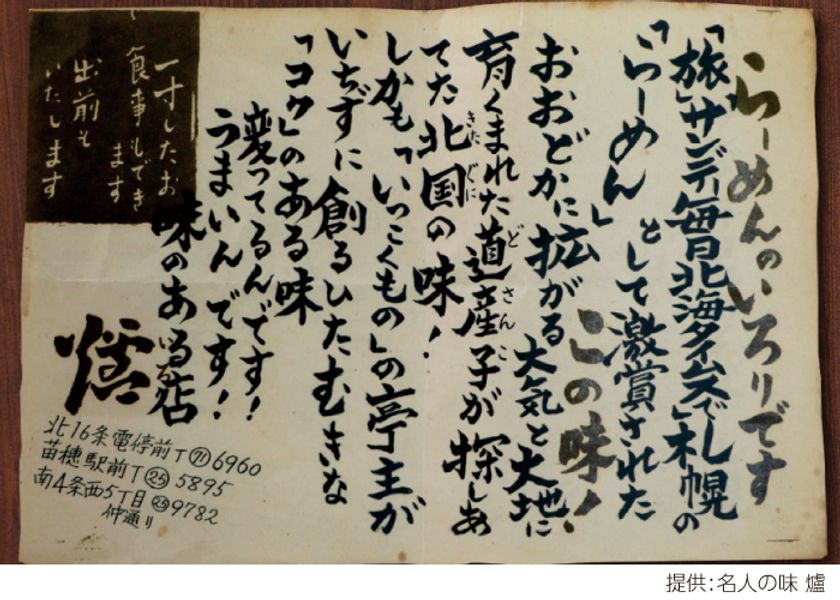 らーめんのいろりです
「旅」サンデー毎日北海タイムスで札幌の
「らーめん」として激賞された
この味!
おおどかに拡がる大気と大地に
育くまれた道産子が探しあ
てた北国の味!
しかも「いっこくもの」の亭主が
いちずに創るひたむきな
「コク」のある味
変ってるんです!
うまいんです!
味のある店
爐
一寸したお
食事もでき
ます
出前も
いたします
北16条電停前T㋆6960
苗穂駅前T㉕5895
南4条西5丁目
仲通り
提供:名人の味 爐